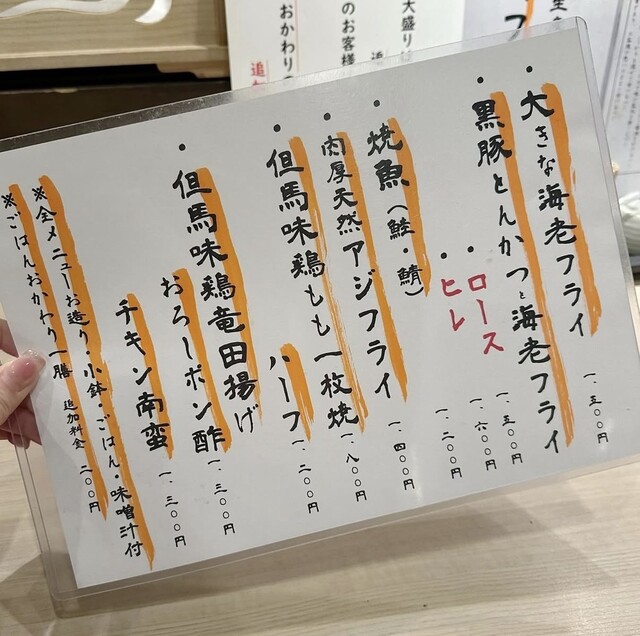 ・大きな海老フライ 一、五〇〇円
・黒豚とんかつと海老フライ
・ロース 一、五〇〇円
・ヒレ 一、六〇〇円
・焼魚（鮭・鯖） 一、二〇〇円
・肉厚天然アジフライ 一、四〇〇円
・但馬味鶏もも一枚焼 一、八〇〇円
ハーフ 一、二〇〇円
・但馬味鶏竜田揚げ
おろしポン酢 一、三〇〇円
チキン南蛮 一、三〇〇円
※全メニューお造り・小鉢・ごはん・味噌汁付
※ごはんおかわり一膳 追加料金 二〇〇円
大盛り
のお客様
おかわりの
追加